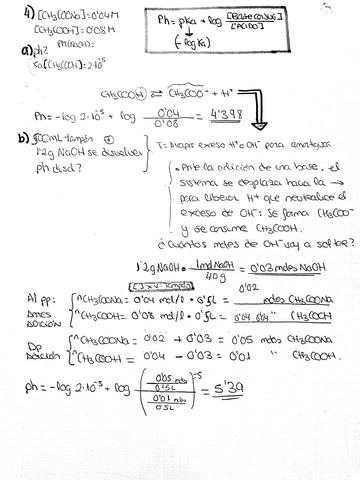 4) [CH3COONa] = 0'04 M
[CH3COOH] = 0'08 M
PM(NaOH) =
Ph = pKa + log [BASE CONJUG] / [ÁCIDO]
(-log Ka)
a) ph?
Ka [CH3COOH] = 2·10^-5
CH3COOH ⇌ CH3COO⁻ + H⁺
Ph = -log 2·10^-5 + log 0'04/0'08 = 4'398
b) 500ML tampón
1'2g NaOH se disuelven
ph disol?
T = Atrapar exceso H⁺ o OH⁻ para amortiguar
• Ante la adición de una base, el
sistema se desplaza hacia la →
para liberar H⁺ que neutralice el
exceso de OH⁻: Se forma CH3COO⁻
y se consume CH3COOH.
¿Cuántos moles de OH⁻ voy a soltar?
1'2g NaOH · 1mol NaOH / 40g = 0'03 moles NaOH
Al pp:
ANTES
ADICIÓN
nCH3COONa = 0'04 mol/l · 0'5L = 0'02 moles CH3COONa
nCH3COOH = 0'08 mol/l · 0'5L = 0'04 " CH3COOH
Dp
ADICIÓN
nCH3COONa = 0'02 + 0'03 = 0'05 moles CH3COONa
nCH3COOH = 0'04 - 0'03 = 0'01 " CH3COOH.
ph = -log 2·10^-5 + log (0'05 mols/0'5L / 0'01 mols/0'5L) = 5'39